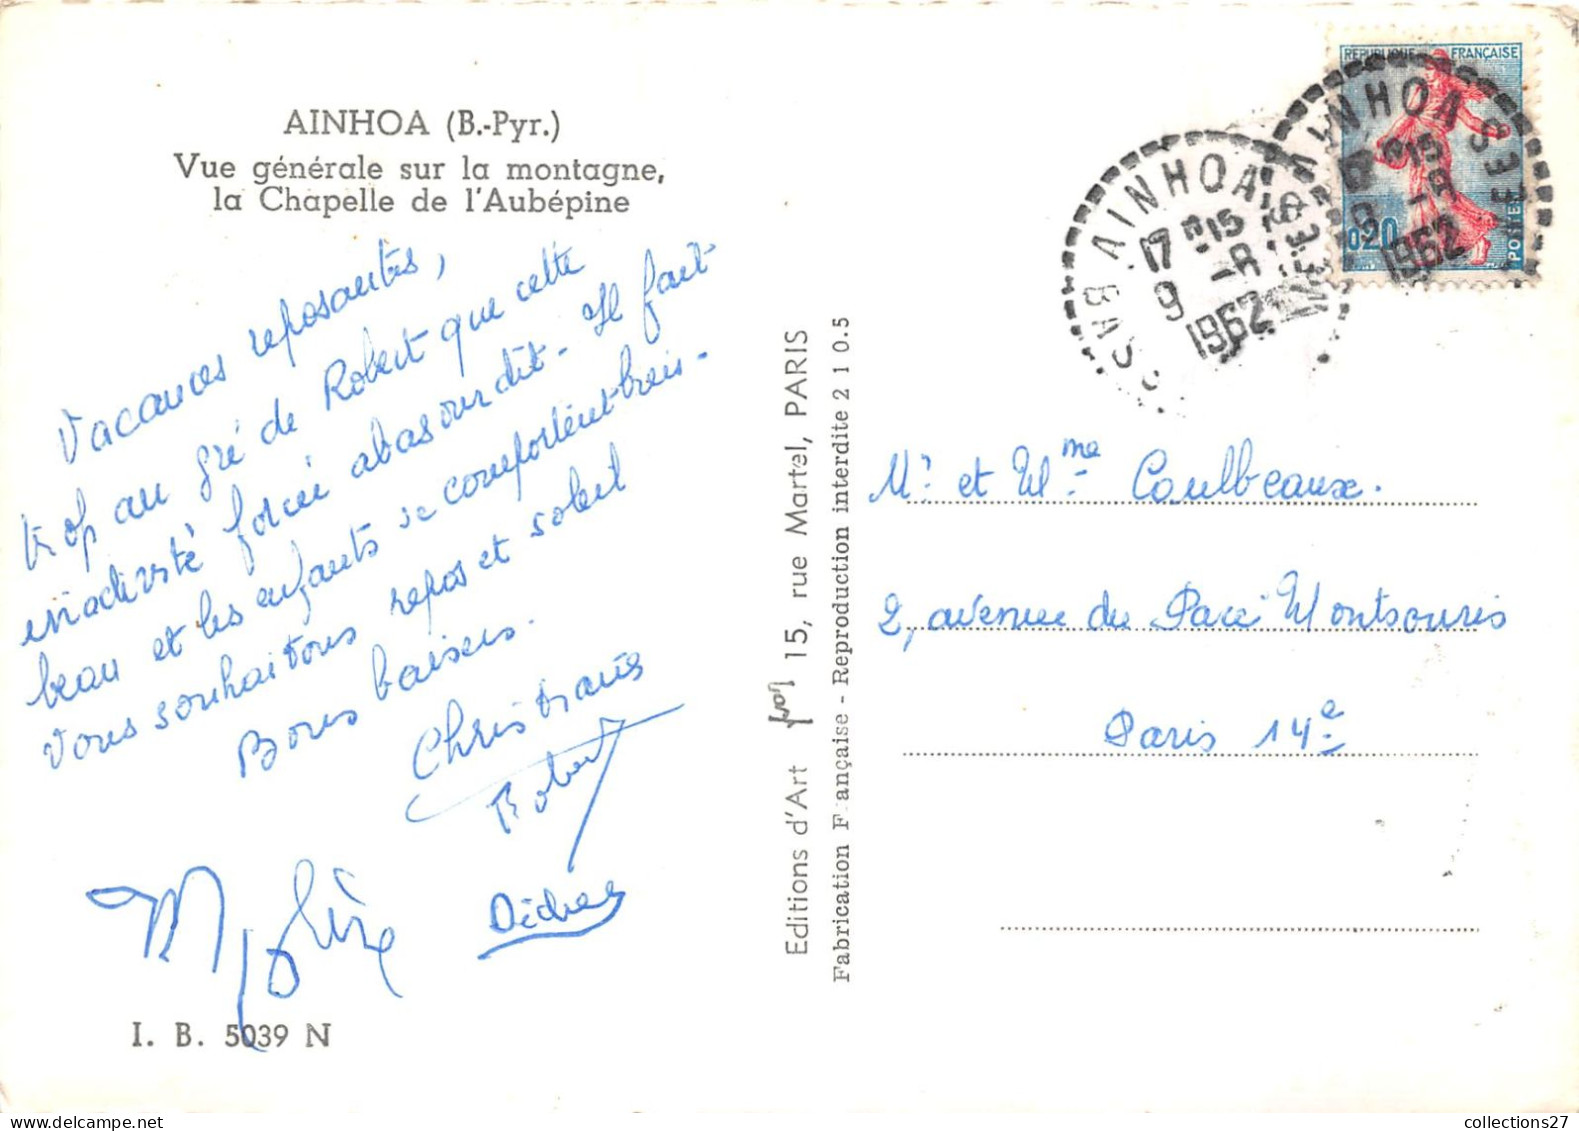 AINHOA (B.-Pyr.)
Vue générale sur la montagne,
la Chapelle de l'Aubépine
Vacances reposantes,
trop au gré de Robert que cette
inactivité forcée abasourdit - Il fait
beau et les enfants se comportent bien -
Vous souhaitons repos et soleil
Bons baisers.
Christiane
Robert
Didier
I. B. 5039 N
Editions d'Art 15, rue Martel, PARIS
Fabrication F ançaise - Reproduction interdite 2 1 0.5
REPUBLIQUE FRANÇAISE
0,20
POSTES
AINHOA
17 H 15
9 -8
1962
BASSES
AINHOA
17 H 15
9 -8
1962
Mr et Mme Coulbeaux.
2, avenue du Parc Montsouris
Paris 14e
collections27